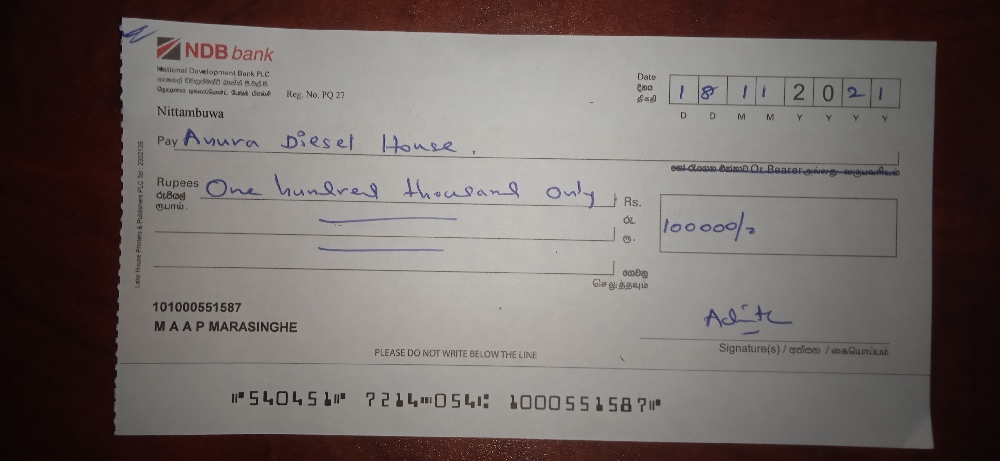 NDB bank
National Development Bank PLC
නැෂනල් ඩිවලොප්මන්ට් බෑන්ක් පී.එල්.සී.
Reg. No. PQ 27
Nittambuwa
Date
දිනය
திகதி
1 8 1 1 2 0 2 1
D D M M Y Y Y Y
Pay Anura Diesel House.
හෝ රැගෙන එන්නාට Or Bearer அல்லது
Rupees One hundred thousand only
රුපියල්
ரூபாய்
Rs.
රු.
ரூ.
100000/=
ගෙවනු
செலுத்தவும்
Lake House Printers & Publishers PLC
101000551587
M A A P MARASINGHE
Signature(s) / අත්සන / கையொப்பம்
PLEASE DO NOT WRITE BELOW THE LINE
⑈540451⑈ 7214⑉054⑆ 1000551587⑈